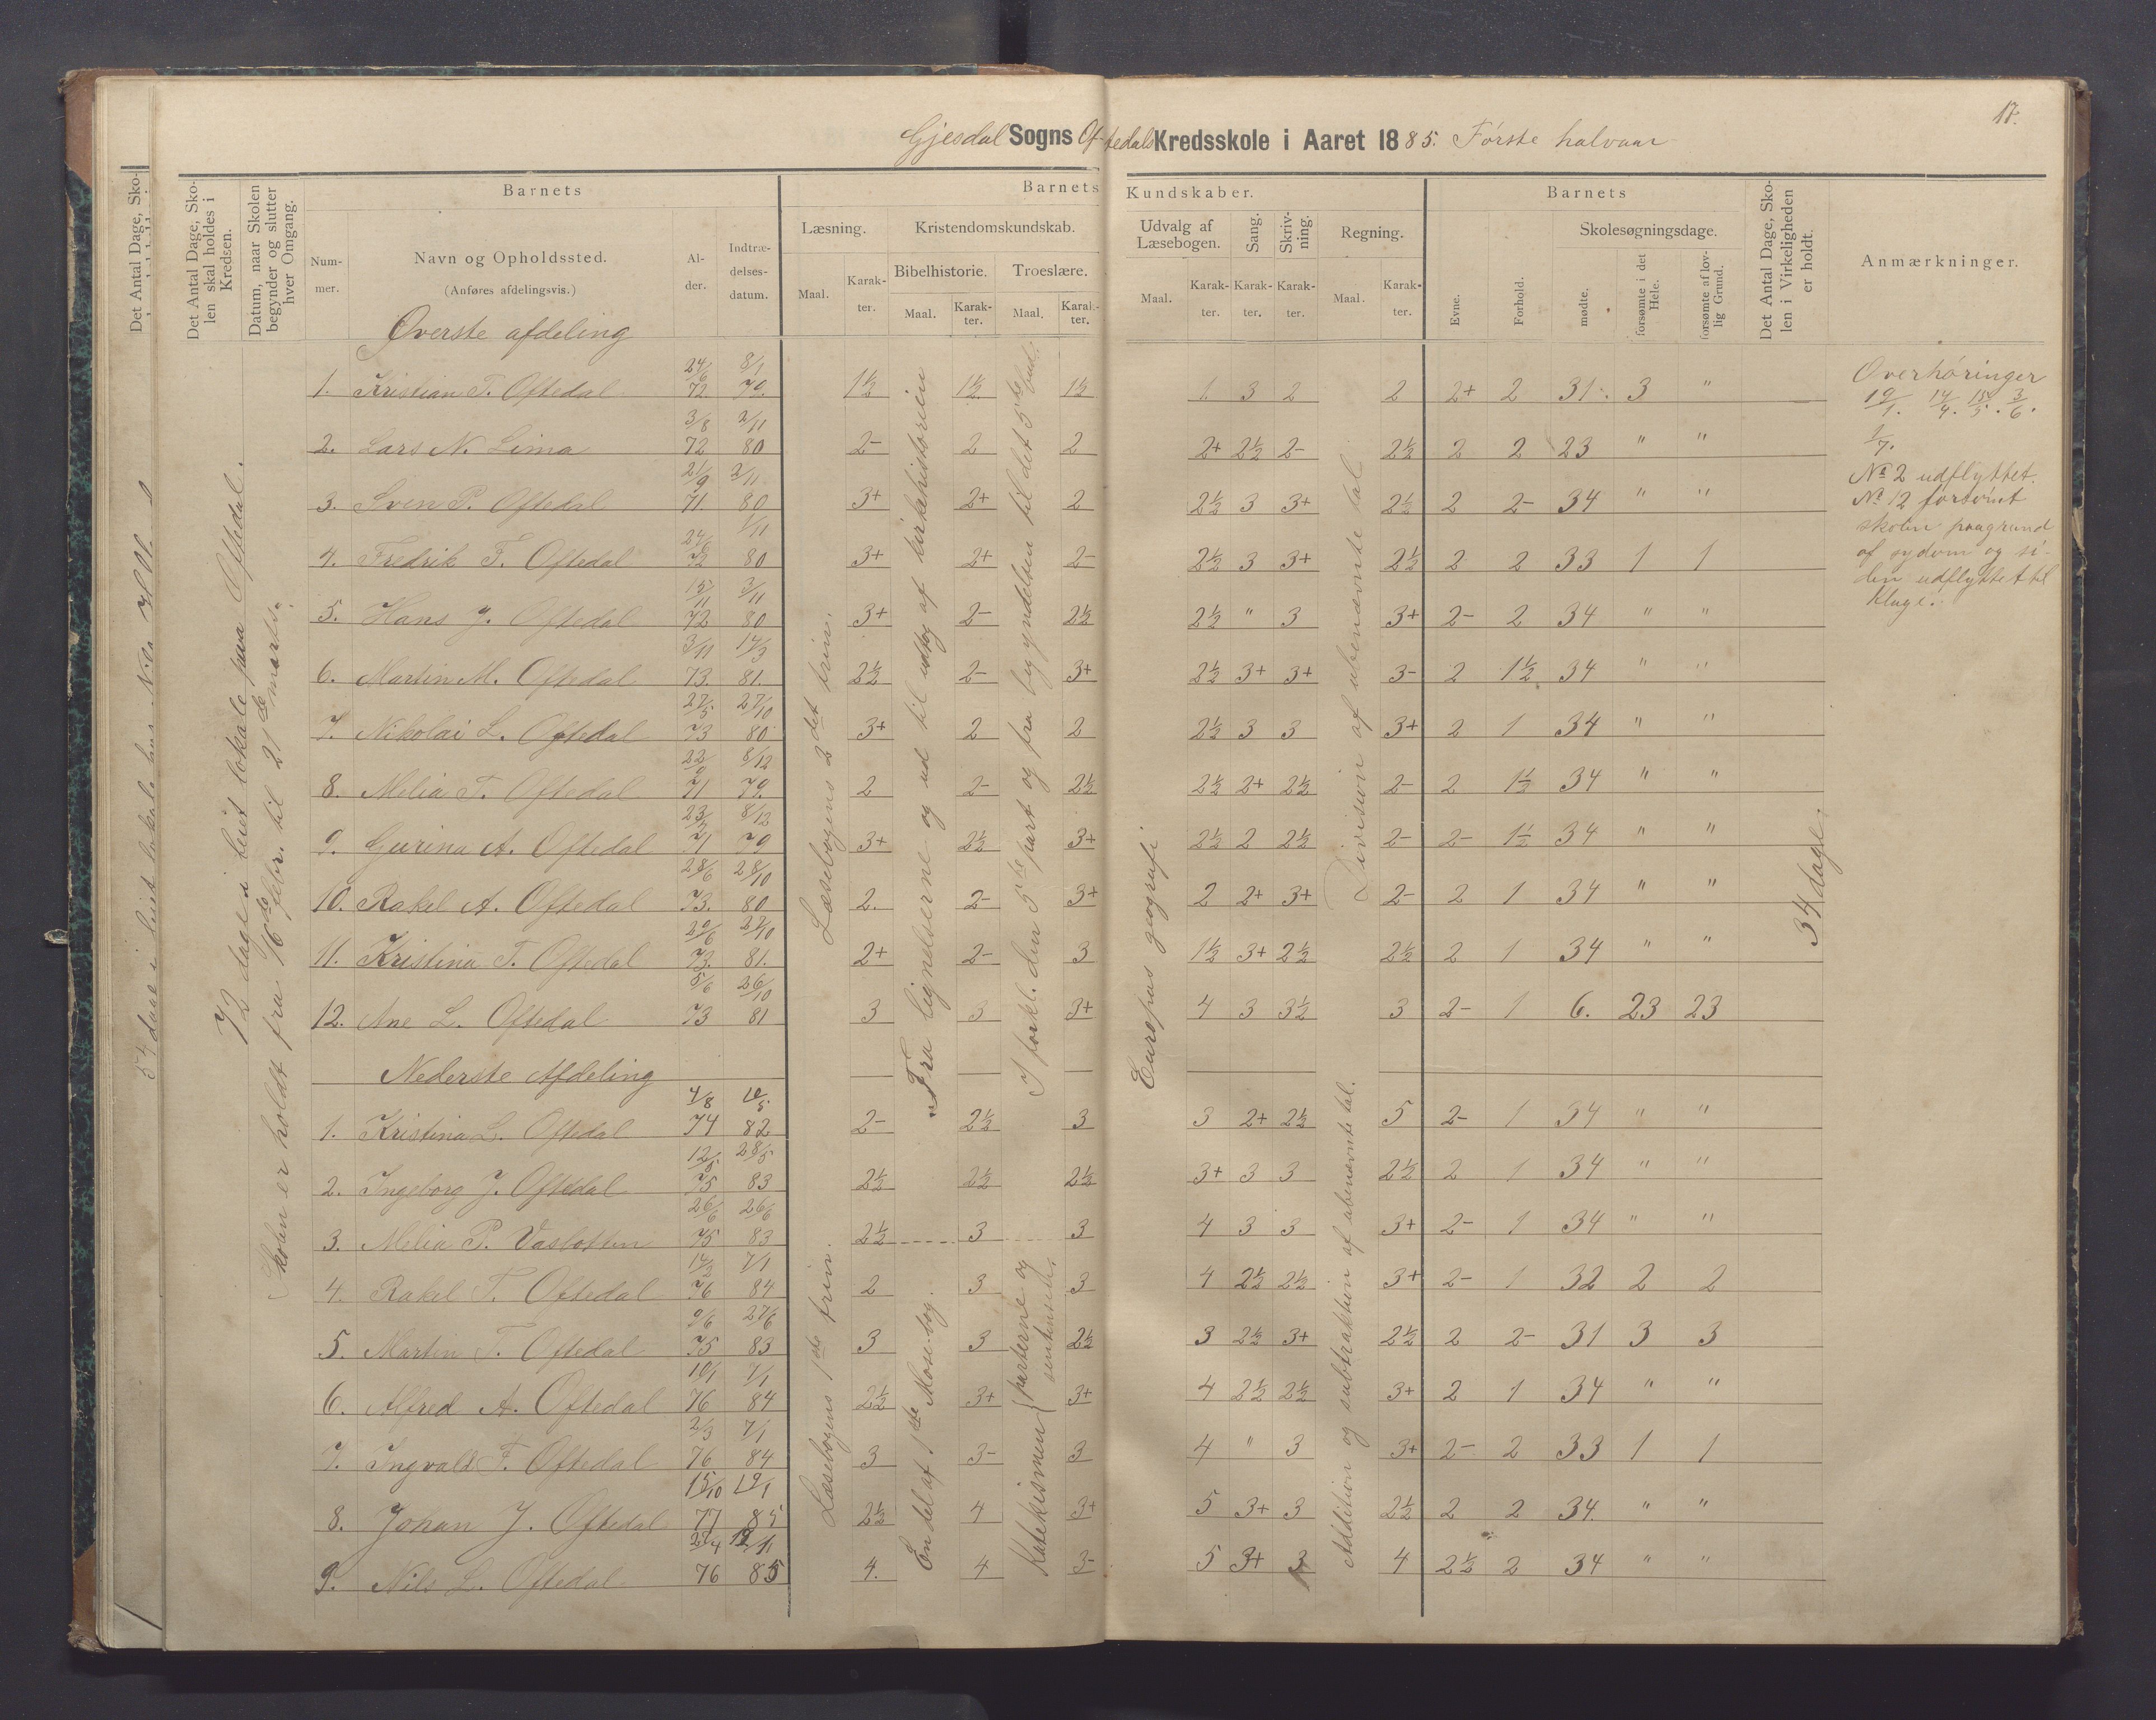 17.
Gjesdal Sogns Oftedals Kredsskole i Aaret 1885. Første halvaar
Det Antal Dage, Skolen skal holdes i Kredsen.
Datum, naar Skolen begynder og slutter hver Omgang.
Barnets
Nummer.
Navn og Opholdssted.
(Anføres afdelingsvis.)
Alder.
Indtrædelsesdatum.
Barnets Kundskaber.
Læsning.
Maal.
Karakter.
Kristendomskundskab.
Bibelhistorie.
Maal.
Karakter.
Troeslære.
Maal.
Karakter.
Udvalg af Læsebogen.
Maal.
Karakter.
Sang.
Karakter.
Skrivning.
Karakter.
Regning.
Maal.
Karakter.
Barnets
Evne.
Forhold.
Skolesøgningsdage.
mødte.
forsømte i det Hele.
forsømte af lovlig Grund.
Det Antal Dage, Skolen i Virkeligheden er holdt.
Anmærkninger.
72 dage i leiet lokale paa Oftedal.
Skolen er holdt fra 16de febr. til 21de marts.
Læsebogens 2det trin.
Fra lignelserne og ud til udtog af kirkehistorien
I forkl. den 5te part og fra begyndelsen til det 5te bud.
Europas geografi
Division af ubenævnte tal
34 dage.
Øverste afdeling
1. Kristian T. Oftedal 24/6 72. 8/1 79. 1½ 1½ 1½ 1. 3 2 2 2+ 2 31. 3 "
2. Lars N. Lima 3/8 72 2/11 80 2- 2 2 2+ 2½ 2- 2½ 2 2 23 " "
3. Sven P. Oftedal 21/9 71. 2/11 80 3+ 2+ 2 2½ 3 3+ 2½ 2 2- 34 " "
4. Fredrik F. Oftedal 24/6 72 1/11 80 3+ 2+ 2- 2½ 3 3+ 2½ 2 2 33 1 1
5. Hans J. Oftedal 15/11 72 3/11 80 3+ 2- 2½ 2½ " 3 3+ 2- 2 34 " "
6. Martin M. Oftedal 3/11 73. 14/3 81. 2½ 2- 3+ 2½ 3+ 3+ 3- 2 1½ 34 " "
7. Nikolai L. Oftedal 27/5 73 27/10 80 3+ 2 2 2½ 3 3 3+ 2 1 34 " "
8. Melia T. Oftedal 22/9 71 8/12 79. 2 2- 2½ 2½ 2+ 2½ 2- 2 1½ 34 " "
9. Gurina A. Oftedal 71 8/12 79 3+ 2½ 3+ 2½ 2 2½ 2- 2- 1½ 34 " "
10. Rakel A. Oftedal 28/6 73. 28/10 80 2. 2- 3+ 2 2+ 3+ 2- 2 1 34 " "
11. Kristina T. Oftedal 29/6 73. 81. 2+ 2- 3 1½ 3+ 2½ 2½ 2 1 34 " "
12. Ane L. Oftedal 5/6 73 26/10 81 3 3 3+ 4 3 3½ 3 2- 1 6. 23 23
Nederste Afdeling
1. Kristina L. Oftedal 4/8 74 82 2- 2½ 3 3 2+ 2½ 5 2- 1 34 " "
2. Ingeborg J. Oftedal 12/5 75 28/5 83 2½ 2½ 2½ 3+ 3 3 2½ 2 1 34 " "
3. Melia P. Vaslotten 26/6 75 26/6 83 2½ 3 3 4 3 3 3+ 2- 1 34 " "
4. Rakel T. Oftedal 14/2 76 7/1 84 2 3 3 4 2½ 2½ 3+ 2- 1 32 2 2
5. Martin T. Oftedal 9/6 75 27/6 83 3 3 2½ 3 2½ 3+ 2½ 2 2- 31 3 3
6. Alfred A. Oftedal 10/1 76 7/1 84 2½ 3+ 3+ 4 2½ 2½ 3+ 2 1 34 " "
7. Ingvald F. Oftedal 2/3 76 7/1 84 3 3- 3 4 " 3 3+ 2- 2 33 1 1
8. Johan J. Oftedal 15/10 77 19/1 85 2½ 4 3+ 5 3+ 3 2½ 2 2 34. " "
9. Nils L. Oftedal 76 85 4. 4 3- 5 3+ 3 4 2½ 2 34 " "
Læsebogens 1ste trin.
En del af 1ste Mose-bog.
Katekismen { parterne og
Addition og subtraktion af ubenævnte tal.
Overhøringer
19/1. 14/4. 15/5. 3/6.
1/7.
No 2 udflyttet.
No 12 forsømt
skolen paagrund
af sydom og si-
den udflyttet til